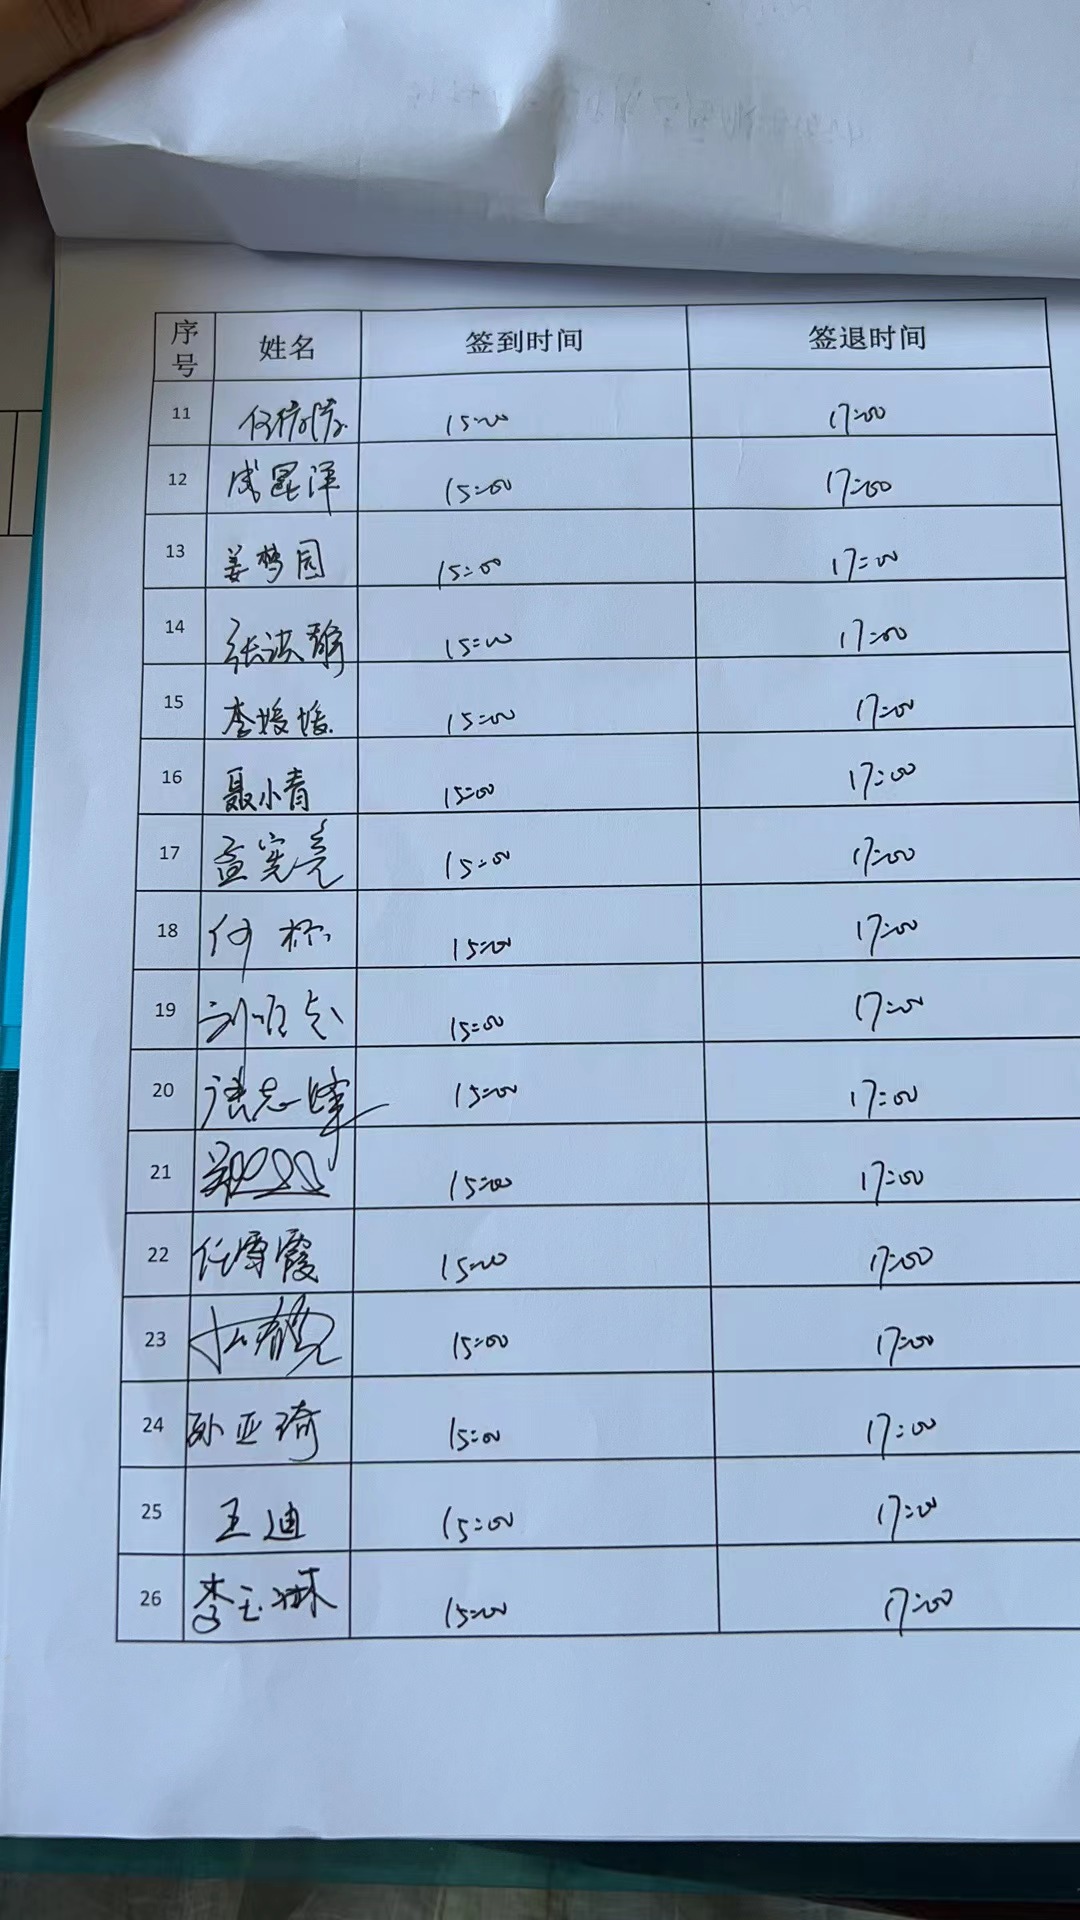 序号 姓名 签到时间 签退时间
11 15:00 17:00
12 15:00 17:00
13 姜梦园 15:00 17:00
14 张洪 15:00 17:00
15 李媛媛 15:00 17:00
16 聂小青 15:00 17:00
17 孟宪亮 15:00 17:00
18 何 15:00 17:00
19 15:00 17:00
20 15:00 17:00
21 15:00 17:00
22 任雪霞 15:00 17:00
23 15:00 17:00
24 孙亚琦 15:00 17:00
25 王迪 15:00 17:00
26 李玉琳 15:00 17:00